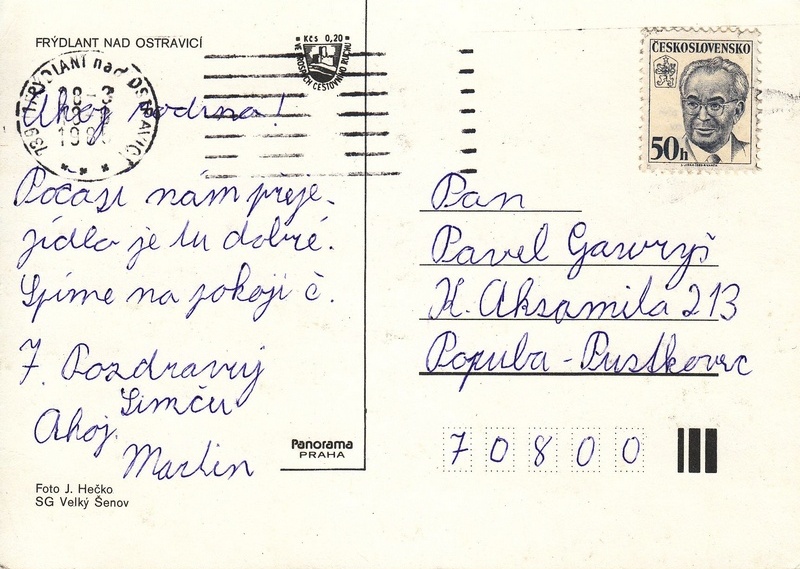 FRÝDLANT NAD OSTRAVICÍ
Kčs 0,20
VE PROSPĚCH CESTOVNÍHO RUCHU
ČESKOSLOVENSKO
50h
739 11 FRÝDLANT nad OSTRAVICÍ
Ahoj rodino!
Počasí nám přeje.
jídlo je tu dobré.
Spíme na pokoji č.
7. Pozdravuj
Simču
Ahoj.
Martin
Pan
Pavel Gawryś
K. Aksamita 213
Popuba - Pustkovec
70800
Panorama
PRAHA
Foto J. Hečko
SG Velký Šenov